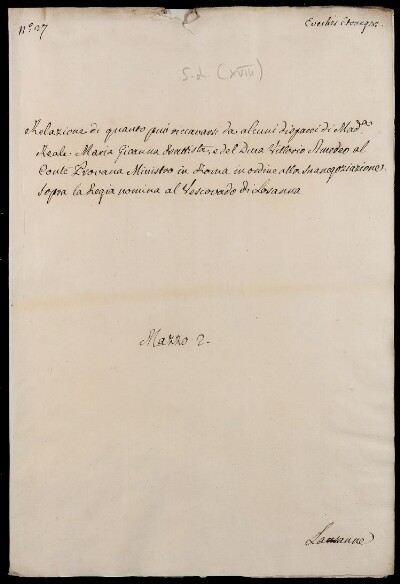 N.º 27
Evechés Etrangers
S.d. (XVIII)
Relazione di quanto può riccavarsi da alcuni dispacci di Mad.ª
Reale Maria Gioanna Battista, e del Duca Vittorio Amedeo al
Conte Provana Ministro in Roma in ordine alla sua negoziazione
Sopra la Regia nomina al Vescovado di Losanna
Mazzo 2.
Lausanne